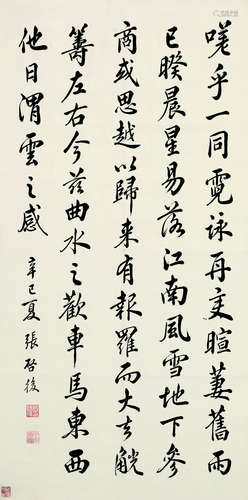 嗟乎一同霓詠再變暄萋舊雨
已睽晨星易落江南風雪地下參
商或思越以歸来有報羅而大去觥
籌左右今茲曲水之歡車馬東西
他日渭雲之感
辛巳夏張啓後